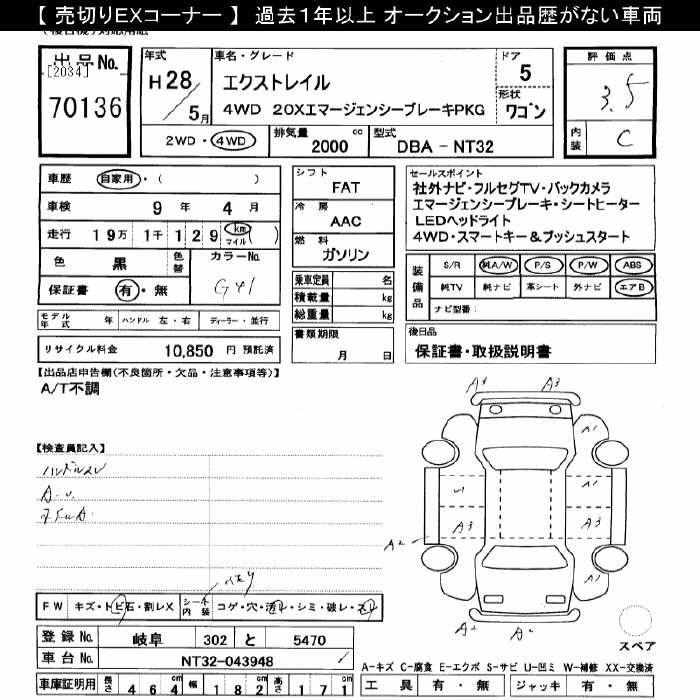 【 売切りEXコーナー 】 過去1年以上 オークション出品歴がない車両
出品No.
[2034]
70136
年式
H28/5月
車名・グレード
エクストレイル
4WD 20XエマージェンシーブレーキPKG
ドア
5
形状
ワゴン
評価点
3.5
内装
C
2WD・4WD
排気量
2000 cc
型式
DBA - NT32
車歴 自家用・( )
車検 9 年 4 月
走行 19万 1千 129 km マイル ( )
色 黒 色替
カラーNo.
G41
保証書 有・無
シフト
FAT
冷房
AAC
燃料
ガソリン
乗車定員 名
積載量 kg
総重量 kg
セールスポイント
社外ナビ・フルセグTV・バックカメラ
エマージェンシーブレーキ・シートヒーター
LEDヘッドライト
4WD・スマートキー＆プッシュスタート
装備品
S/R 純A/W P/S P/W ABS
純TV 純ナビ 革シート 外ナビ エアB
ナビ型番：
モデル年式 年 ハンドル 左・右 ディーラー・並行
リサイクル料金 10,850 円 預託済
書類期限
月 日
後日品
保証書・取扱説明書
【出品店申告欄(不良箇所・欠品・注意事項等)】
A/T不調
【検査員記入】
ハンドルスレ
A3 A3
A1
A1
U A3
A3 A3
A2
A1
A2 A2
FW キズ・トビ石・割レX シート内装 コゲ・穴・汚レ・シミ・破レ・スレ
登録No. 岐阜 302 と 5470
車台No. NT32-043948
車庫証明用 長さ 464cm 幅 182cm 高さ 171cm
スペア
A-キズ C-腐食 E-エクボ S-サビ U-凹ミ W-補修 XX-交換済
工具 有・無 ジャッキ 有・無